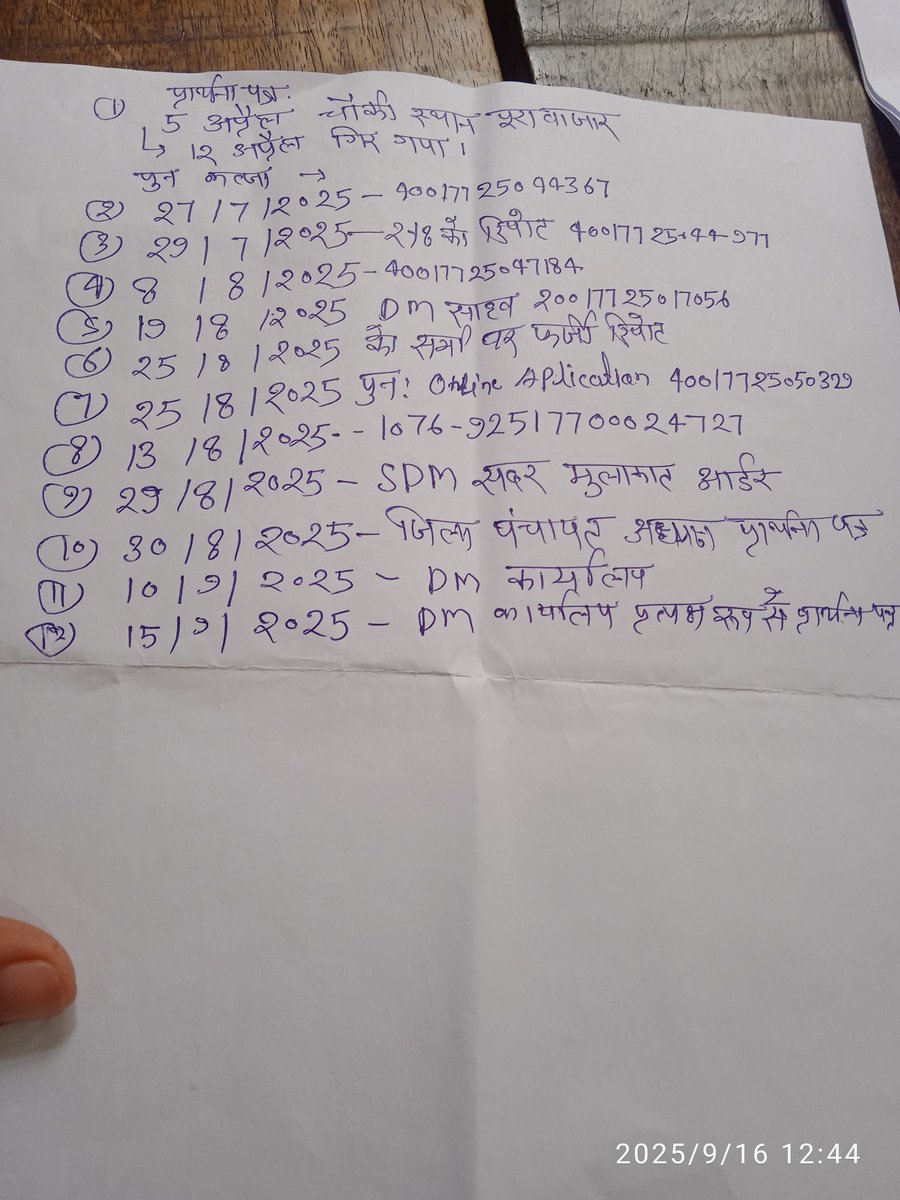 प्रार्थना पत्र.
① 5 अप्रैल चौकी स्थान पूरा बाजार
↳ 12 अप्रैल गिर गया।
पुन कब्जा →
② 27/7/2025 - 40017725044367
③ 29/7/2025 - 2/8 को रिपोट 40017725044977
④ 8/8/2025 - 40017725047184
⑤ 19/8/2025 DM साहब 20017725017056
⑥ 25/8/2025 के सभी पर फर्जी रिपोट
⑦ 25/8/2025 पुन: Online Aplication 40017725050329
⑧ 13/8/2025 - - 1076-92517700024727
⑨ 29/8/2025 - SDM सदर मुलाकात आर्डर
⑩ 30/8/2025 - जिला पंचायत अध्यक्ष प्रार्थना पत्र
⑪ 10/9/2025 - DM कार्यालय
⑫ 15/9/2025 - DM कार्यालय प्रत्यक्ष रूप से प्रार्थना पत्र
2025/9/16 12:44